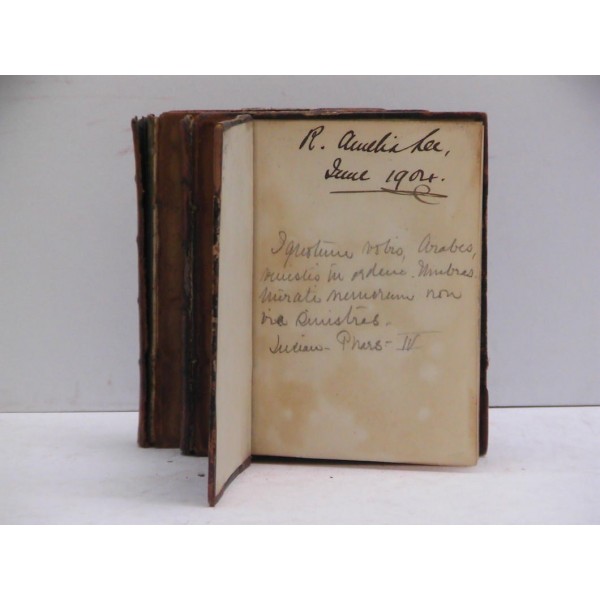 R. Amelia Lee,
June 1904.
Ignotum vobis, Arabes,
venistis in orbem. Umbras
mirati nemorum non
ire sinistras.
Lucan - Phars - IV